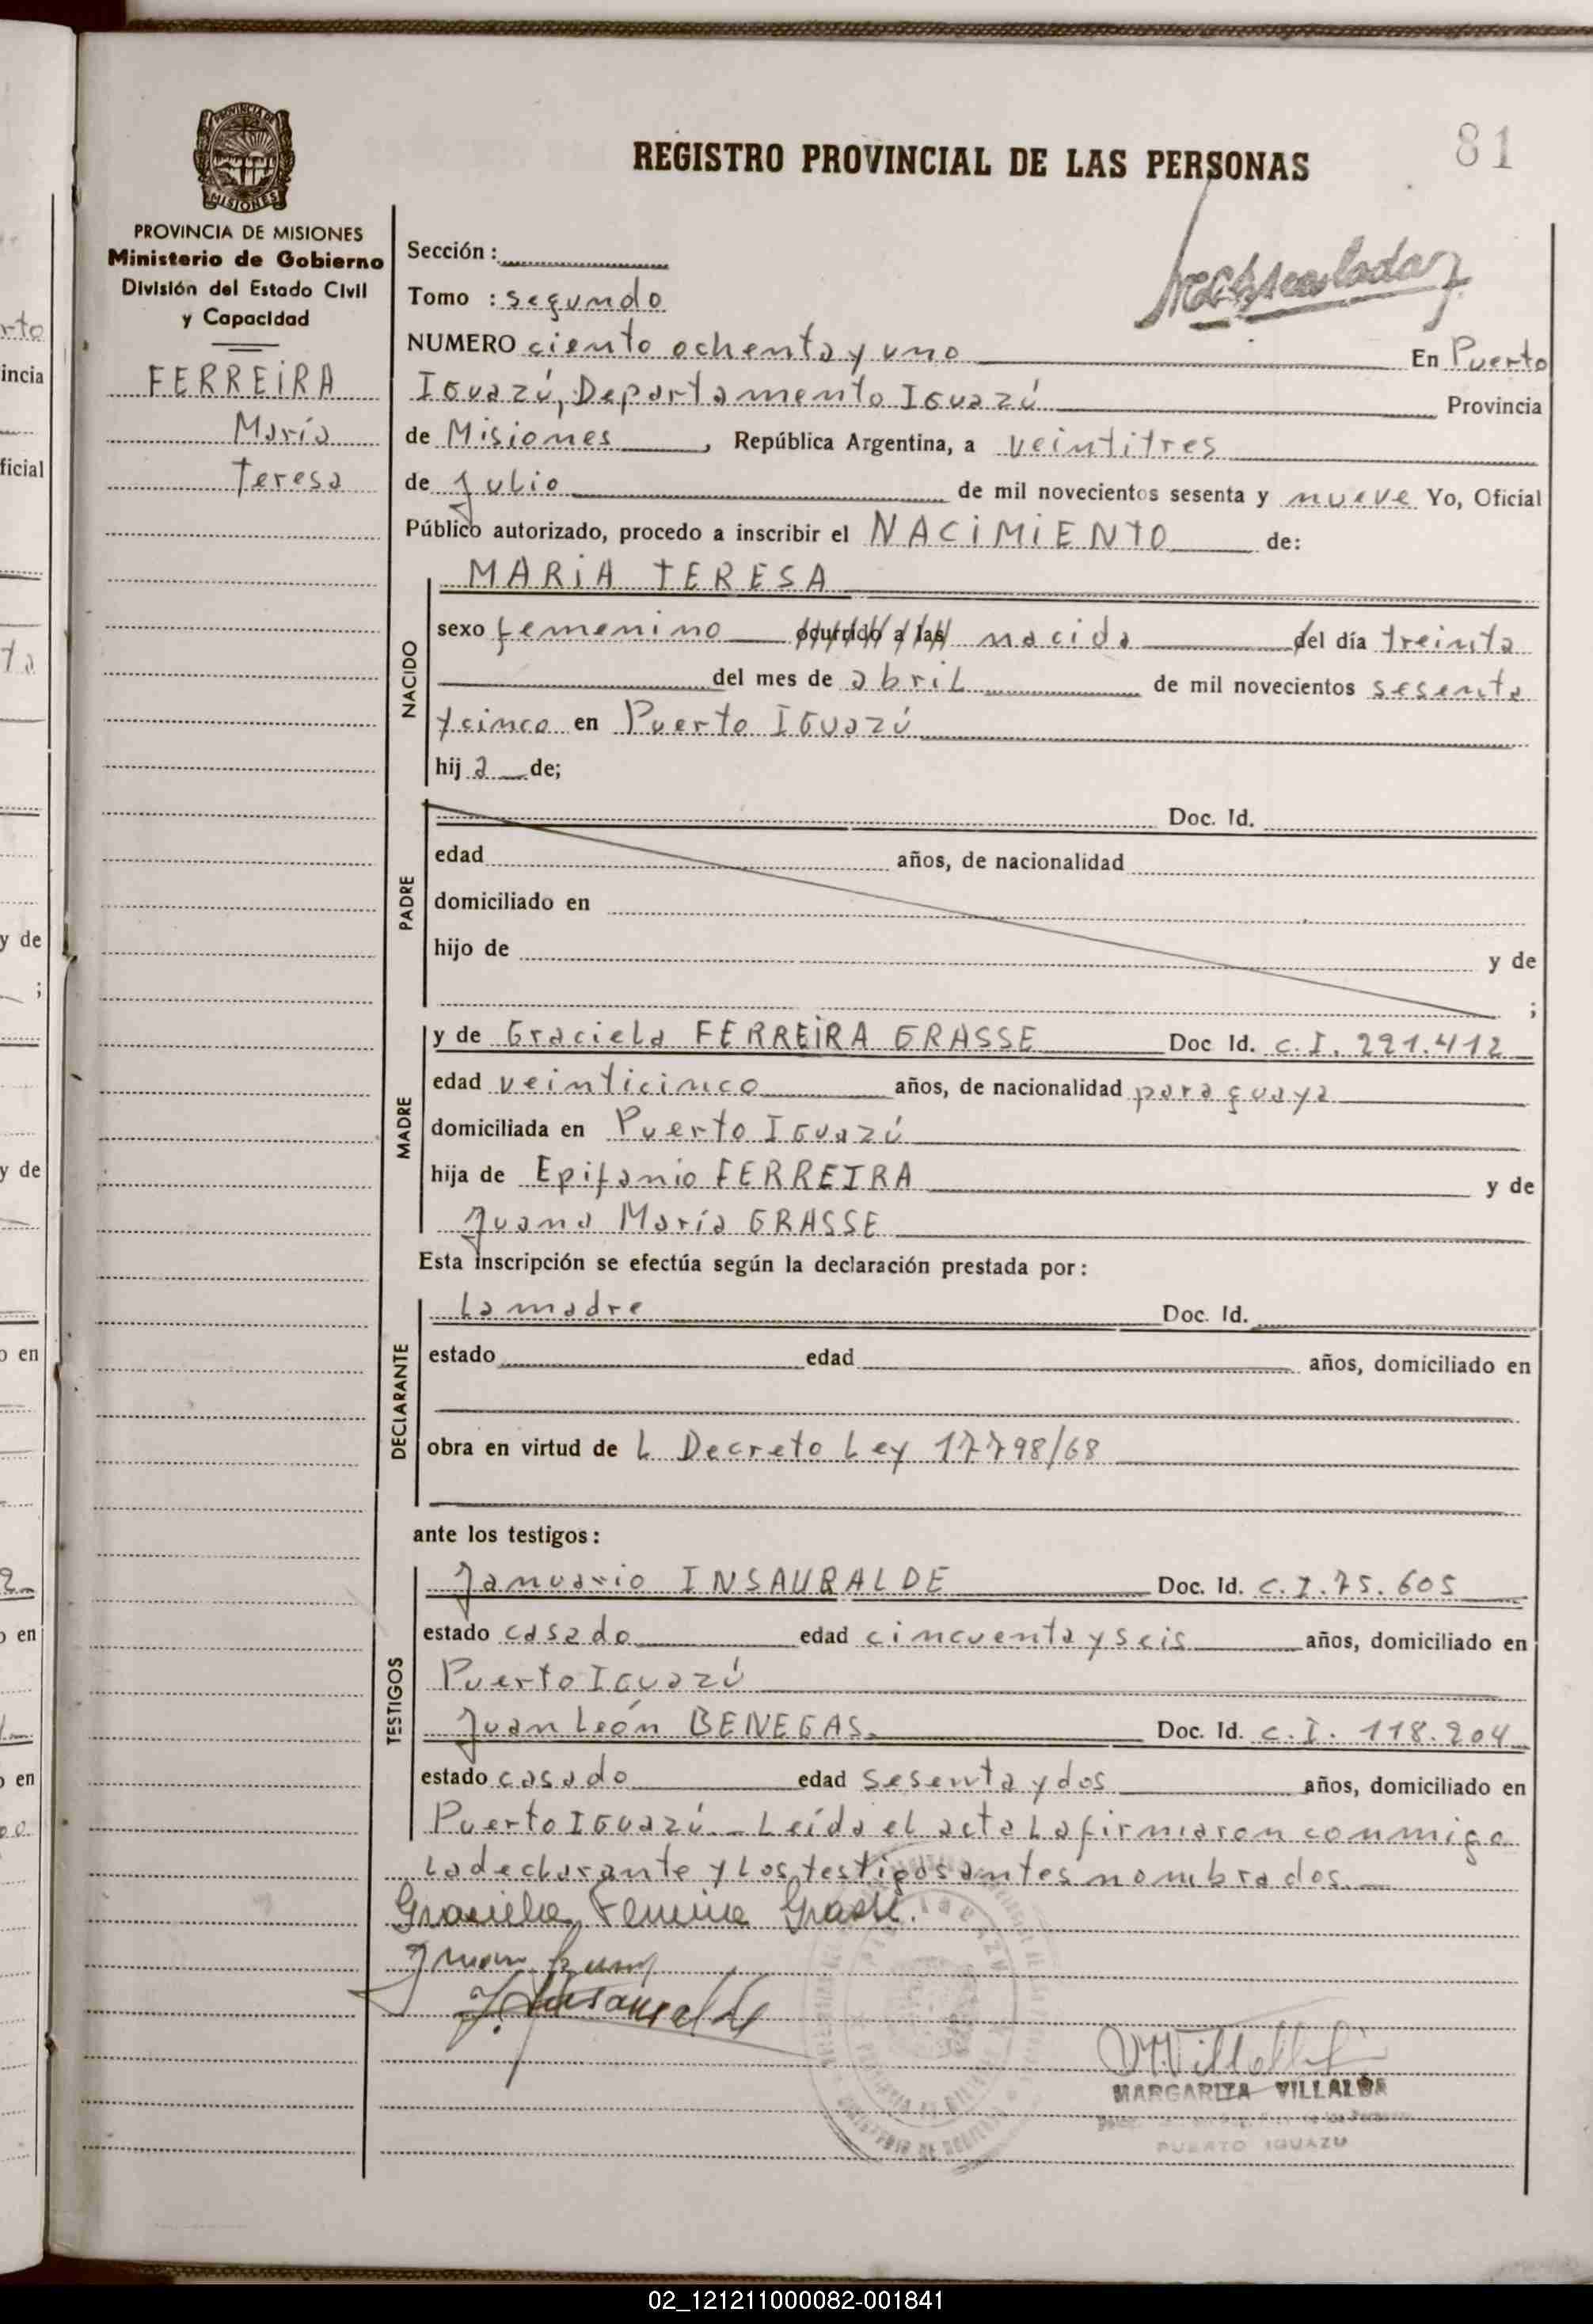 81
REGISTRO PROVINCIAL DE LAS PERSONAS
PROVINCIA DE
MISIONES
PROVINCIA DE MISIONES
Ministerio de Gobierno
División del Estado Civil
y Capacidad
FERREIRA
María
Teresa
Sección :
Tomo : segundo
NUMERO ciento ochenta y uno En Puerto
Iguazú, Departamento Iguazú Provincia
de Misiones , República Argentina, a veintitres
de Julio de mil novecientos sesenta y nueve Yo, Oficial
Público autorizado, procedo a inscribir el NACIMIENTO de:
NACIDO
MARIA TERESA
sexo femenino ocurrido a las nacida del día treinta
del mes de abril de mil novecientos sesenta
y cinco en Puerto Iguazú
hij a de;
PADRE
Doc. Id.
edad años, de nacionalidad
domiciliado en
hijo de y de
;
MADRE
y de Graciela FERREIRA GRASSE Doc Id. C.I. 221.412
edad veinticinco años, de nacionalidad paraguaya
domiciliada en Puerto Iguazú
hija de Epifanio FERREIRA y de
Juana María GRASSE
Esta inscripción se efectúa según la declaración prestada por :
DECLARANTE
La madre Doc. Id.
estado edad años, domiciliado en
obra en virtud de L Decreto Ley 17798/68
ante los testigos :
TESTIGOS
Januario INSAURALDE Doc. Id. C.I. 75.605
estado casado edad cincuenta y seis años, domiciliado en
Puerto Iguazú
Juan León BENEGAS. Doc. Id. C.I. 118.204
estado casado edad sesenta y dos años, domiciliado en
Puerto Iguazú.- Leída el acta la firmaron conmigo
la declarante y los testigos antes nombrados.-
Graciela Ferreira Grasse.
Juan
J. Insauralde
MARGARITA VILLALBA
PUERTO IGUAZU
02_121211000082-001841